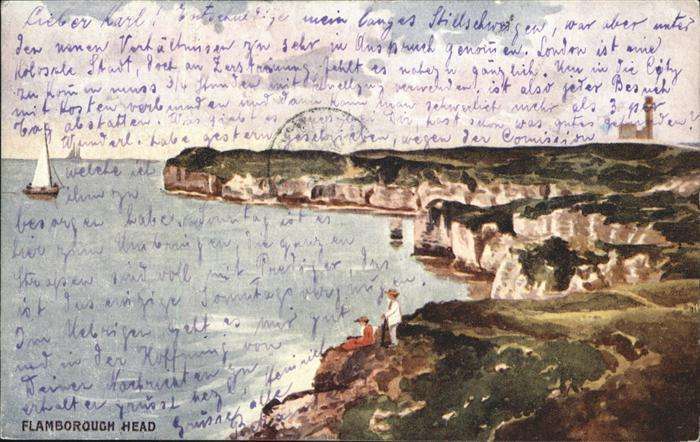 Lieber Karl! Entschuldige mein langes Stillschweigen, war aber unter
den neuen Verhältnissen zu sehr in Anspruch genom̄en. London ist eine
kolosale Stadt, doch an Zerstreuung fehlt es nahezu gänzlich. Um in die City
zu kom̄en muss 3/4 Stunden mit verwenden, ist also jeder Besuch
mit Kosten verbunden und dann kann man schwerlich mehr als 3 per
Tag abstatten. Was giebt es neues bei Dir hast schon was gutes gefunden?
Wunderl. habe gestern geschrieben, wegen der Comission
welche ich
ihm zu
besorgen habe. Sonntag ist es
hier zum Umbringen, die ganzen
Strassen sind voll mit Prediger das
ist das einzige Sonntagsvergnügen.
Im Uebrigen geht es mir gut
und in der Hoffnung von
Deiner Nachrichten zu
erhalten grüsst herzl.
Grüsse alle
FLAMBOROUGH HEAD